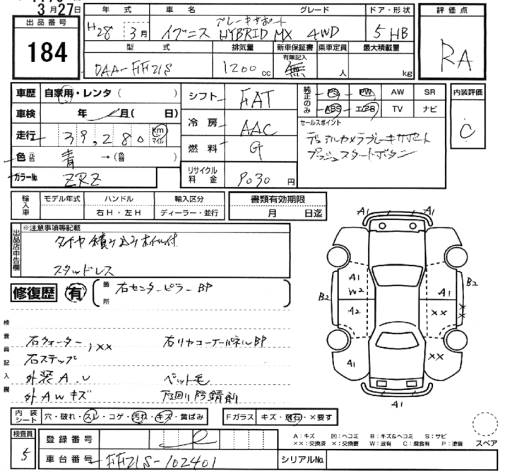 3月27日
出品番号
184
年式 車名 グレード ドア・形状
H28年 3月 イグニス ブレーキサポート HYBRID MX 4WD 5 HB
型式 排気量 新車保証書 乗車定員 最大積載量
有無記入
DAA-FF21S 1200cc 無 人 kg
評価点
RA
車歴 自家用・レンタ ( )
車検 年 月 ( 日)
走行 39,280 km マイル
色 (元色) 青 → (色替)
カラーNo. ZRZ
シフト FAT
冷房 AAC
燃料 G
リサイクル料金 9030 円
純正のみ PS PW AW SR
ABS エアB TV ナビ
内装評価
C
セールスポイント
デュアルカメラブレーキサポート
プッシュスタートボタン
輸入車 モデル年式 ハンドル 輸入区分
右H・左H ディーラー・並行
書類有効期限
月 日迄
出品店申告欄
※注意事項等記載
タイヤ積み込みホイル付
スタッドレス
修復歴 有
箇所 右センターピラーBP
検査員記入欄
右クォーター, XX 右リヤコーナーパネルBP
右ステップ
外装A.U ペット毛
外AWキズ 下回り防錆剤
A1
A1
A1
A1
B2
W2
B2
A2
XX
XX
A1
A1
内装シート 穴・破れ・スレ・コゲ・汚れ・キズ・黄ばみ
Fガラス キズ・飛石・×要す
検査員
5
登録番号
車台番号 FF21S-102401
シリアルNo.
A:キズ B:キズ&ヘコミ S:サビ
××:交換済 ×:要交換 W:波有 C:腐食有 P:塗装
スペア